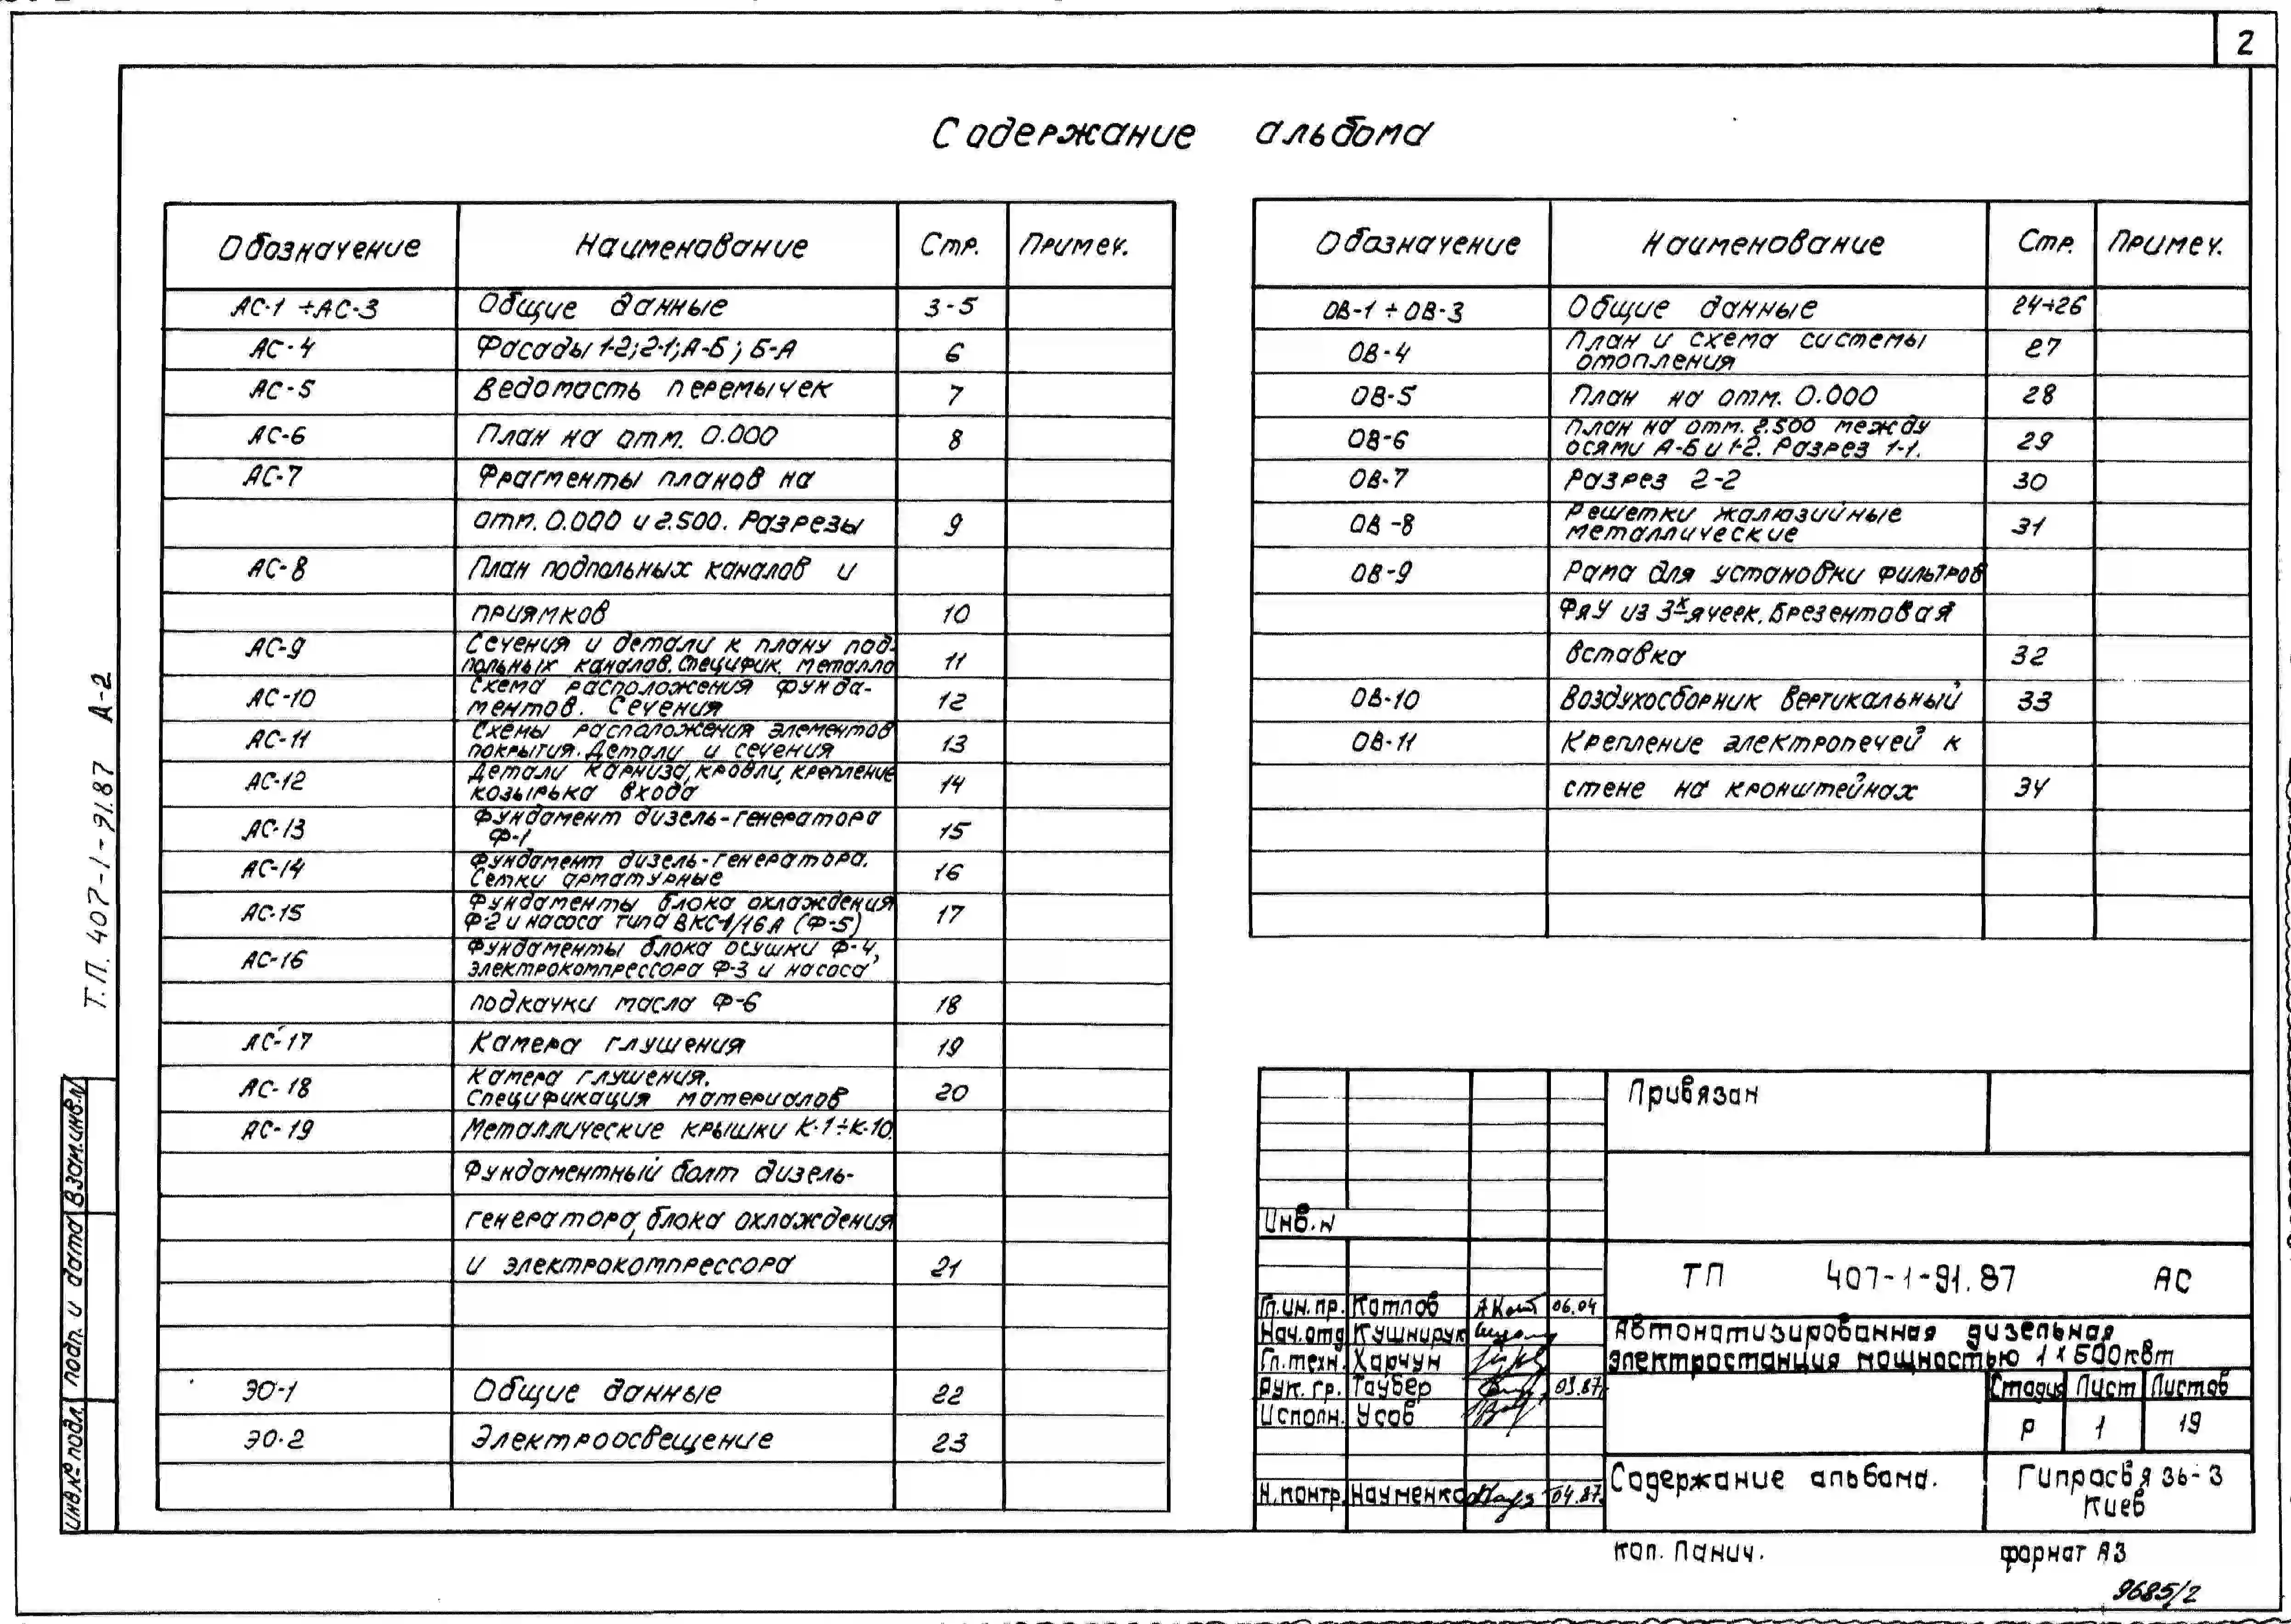 2
Содержание альбома
Обозначение Наименование Стр. Примеч.
АС-1 ÷АС-3 Общие данные 3-5
АС-4 Фасады 1-2; 2-1; А-Б; Б-А 6
АС-5 Ведомость перемычек 7
АС-6 План на отм. 0.000 8
АС-7 Фрагменты планов на
отм. 0.000 и 2.500. Разрезы 9
АС-8 План подпольных каналов и
приямков 10
АС-9 Сечения и детали к плану под-
польных каналов. Специфик. металла 11
АС-10 Схема расположения фунда-
ментов. Сечения 12
АС-11 Схемы расположения элементов
покрытия. Детали и сечения 13
АС-12 Детали карниза, кровли, крепление
козырька входа 14
АС-13 Фундамент дизель-генератора
Ф-1 15
АС-14 Фундамент дизель-генератора.
Сетки арматурные 16
АС-15 Фундаменты блока охлаждения
Ф-2 и насоса типа ВКС-1/16А (Ф-5) 17
АС-16 Фундаменты блока осушки Ф-4,
электрокомпрессора Ф-3 и насоса
подкачки масла Ф-6 18
АС-17 Камера глушения 19
АС-18 Камера глушения.
Спецификация материалов 20
АС-19 Металлические крышки К-1÷К-10.
Фундаментный болт дизель-
генератора, блока охлаждения
и электрокомпрессора 21
ЭО-1 Общие данные 22
ЭО-2 Электроосвещение 23
Обозначение Наименование Стр. Примеч.
ОВ-1 ÷ ОВ-3 Общие данные 24÷26
ОВ-4 План и схема системы
отопления 27
ОВ-5 План на отм. 0.000 28
ОВ-6 План на отм. 2.500 между
осями А-Б и 1-2. Разрез 1-1. 29
ОВ-7 Разрез 2-2 30
ОВ-8 Решетки жалюзийные
металлические 31
ОВ-9 Рама для установки фильтров
ФяУ из 3х ячеек. Брезентовая
вставка 32
ОВ-10 Воздухосборник вертикальный 33
ОВ-11 Крепление электропечей к
стене на кронштейнах 34
Т.П. 407-1-91.87 А-2
Взам.инв.№
Подп. и дата
Инв.№ подл.
Привязан
Инв. №
ТП 407-1-91.87 АС
Гл.ин.пр. Котлов 06.04
Нач.отд Кушнирук
Гл.техн. Харчун
Рук. гр. Таубер 03.87
Исполн. Усов
Н.контр. Науменко 04.87
Автоматизированная дизельная
электростанция мощностью 1×500кВт
Стадия Лист Листов
Р 1 19
Содержание альбома.
Гипросвязь-3
Киев
коп. Панич.
формат А3
9685/2